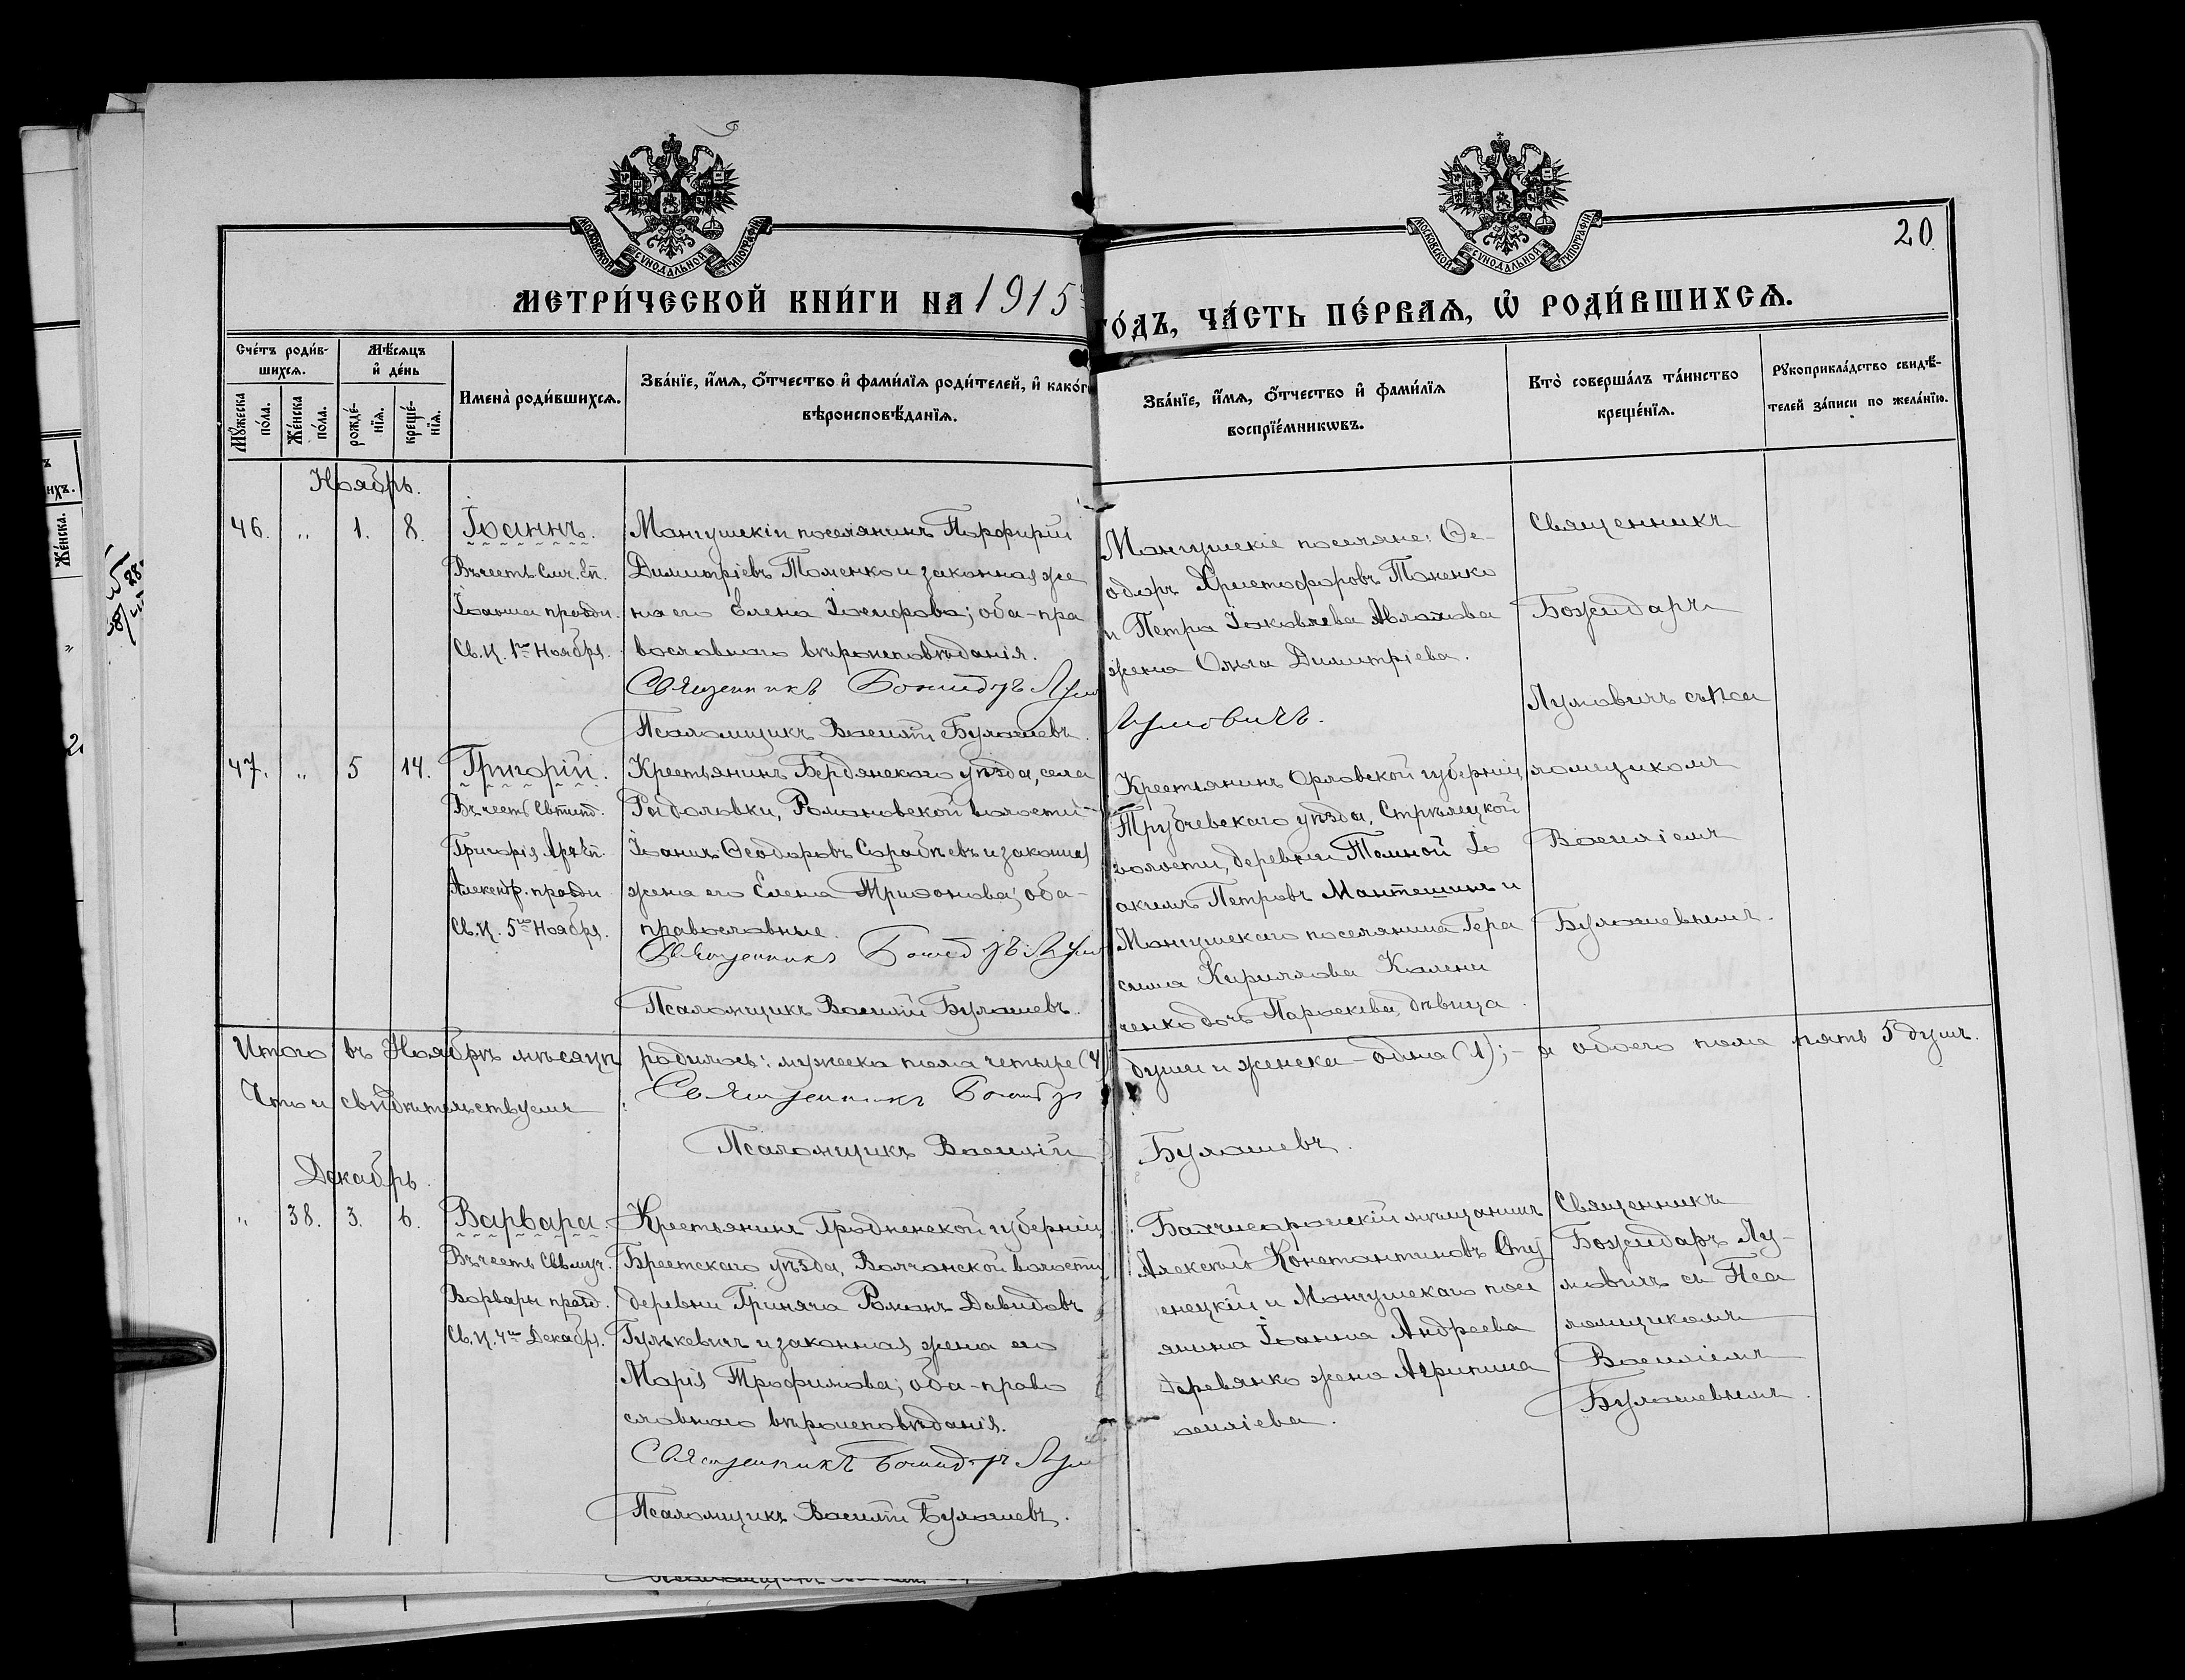 20
МЕТРИ́ЧЕСКОЙ КНИ́ГИ НА 1915
ГО́ДЪ, ЧА́СТЬ ПЕ́РВАѦ, Ѡ҆ РОДИ́ВШИХСѦ.
Сче́тъ роди́в-
шихсѧ.
Мѣ́сѧцъ
и҆ де́нь
Мꙋ́жеска по́ла.
Же́нска по́ла.
рожде́-нїѧ.
креще́-нїѧ.
Имена̀ роди́вшихсѧ.
Зва́нїе, и҆́мѧ, ѻ҆́тчество и҆ фами́лїѧ роди́телей, и҆ како́г
вѣроисповѣ́данїѧ.
Зва́нїе, и҆́мѧ, ѻ҆́тчество и҆ фами́лїѧ
воспрїе́мникѡвъ.
Кто̀ соверша́лъ та́инство
креще́нїѧ.
Рꙋкоприкла́дство свидѣ́-
телей за́писи по жела́нїю.
Ноябрь.
46. „ 1. 8. Іоаннъ.
Въ честь Свм. Еп.
Іоанна праздн.
Св. Ц. 1го Ноября.
Мангушскій поселянинъ Порфирій
Димитріевъ Томенко и законная же
на его Елена Іосифова; оба - пра
вославнаго вѣроисповѣданія.
Священникъ Божидаръ Лумовичъ.
Псаломщикъ Василій Булашевъ.
Мангушскіе поселяне: Ѳе-
одоръ Христофоровъ Томенко
и Петра Іаковлева Авламова
жена Ольга Димитріева.
Священникъ
Божидаръ
Лумовичъ съ Пса
ломщикомъ
Василіемъ
Булашевымъ.
47. „ 5 14. Григорій.
Въ честь Святит.
Григорія Арх. Еп.
Александр. праздн
Св. Ц. 5го Ноября.
Крестьянинъ Бердянскаго уѣзда, села
Рыболовки, Романовской волости
Іоаннъ Ѳеодоровъ Сарабѣевъ и законная
жена его Елена Трифонова; оба -
православные.
Священникъ Божидаръ Лум
Псаломщикъ Василій Булашевъ.
Крестьянинъ Орловской губерніи,
Трубчевскаго уѣзда, Стрѣлецкой
волости, деревни Темной Іо
акимъ Петровъ Мантешинъ и
Мангушскаго поселянина Гера
сима Кириллова Калени
ченко дочь Параскева, дѣвица.
Итого въ Ноябрѣ мѣсяцѣ родилось: мужеска пола четыре (4) души и женска - одна (1); - а обоего пола пять 5 душъ.
Что и свидѣтельствуемъ: Священникъ Божидаръ
Псаломщикъ Василій Булашевъ.
Декабрь.
„ 38. 3. 6. Варвара.
Въ честь Св. Вмуч.
Варвары празд.
Св. Ц. 4го Декабря.
Крестьянинъ Гродненской губерніи,
Брестскаго уѣзда, Волчанской волости,
деревни Гриняча Романъ Давидовъ
Гулькевичъ и законная жена его
Марія Трофимова; оба - право
славнаго вѣроисповѣданія.
Священникъ Божидаръ Лум
Псаломщикъ Василій Булашевъ.
Бахчисарайскій мѣщанинъ
Алексій Константиновъ Сту
енецкій и Мангушскаго посе
янина Іоанна Андреева
Деревянко жена Агрипина
асиліева.
Священникъ
Божидаръ Лу-
мовичъ съ Пса
ломщикомъ
Василіемъ
Булашевымъ.